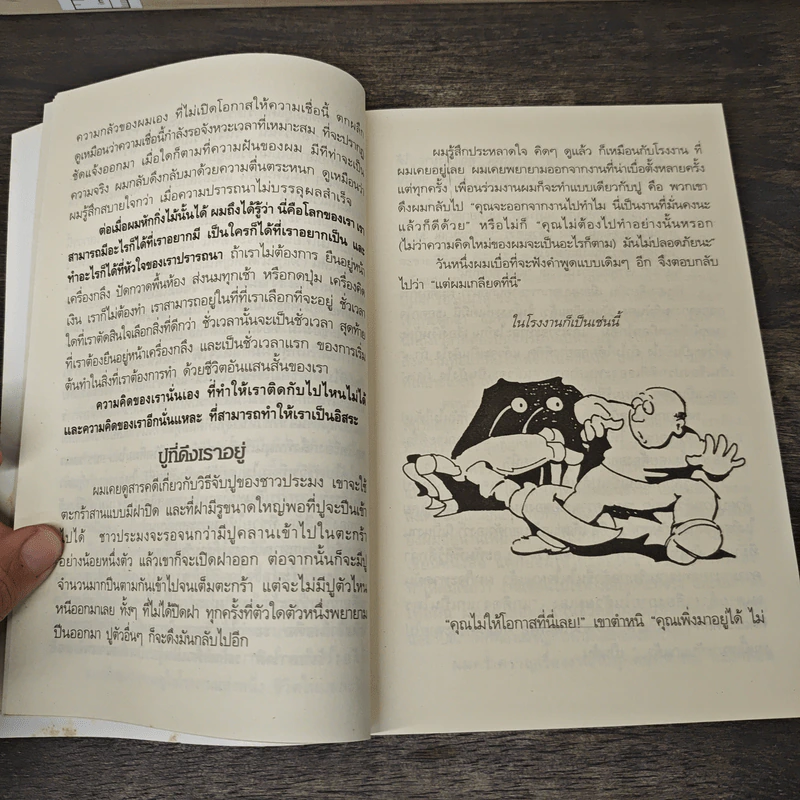 ความกลัวของผมเอง ที่ไม่เปิดโอกาสให้ความเชื่อนี้ ตกผลึก
ดูเหมือนว่าความเชื่อนี้กำลังรอจังหวะเวลาที่เหมาะสม ที่จะปรากฏ
ชัดแจ้งออกมา เมื่อใดก็ตามที่ความฝันของผม มีทีท่าจะเป็น
ความจริง ผมกลับดึงกลับมาด้วยความตื่นตระหนก ดูเหมือนว่า
ผมรู้สึกสบายใจกว่า เมื่อความปรารถนาไม่บรรลุผลสำเร็จ
ต่อเมื่อผมหักกิ่งไม้นั้นได้ ผมถึงได้รู้ว่า นี่คือโลกของเรา เรา
สามารถมีอะไรก็ได้ที่เราอยากมี เป็นใครก็ได้ที่เราอยากเป็น และ
ทำอะไรก็ได้ที่หัวใจของเราปรารถนา ถ้าเราไม่ต้องการ ยืนอยู่หน้า
เครื่องกลึง ปัดกวาดพื้นห้อง ส่งนมทุกเช้า หรือกดปุ่ม เครื่องคิด
เงิน เราก็ไม่ต้องทำ เราสามารถอยู่ในที่ที่เราเลือกที่จะอยู่ ชั่วเวลา
ใดที่เราตัดสินใจเลือกสิ่งที่ดีกว่า ชั่วเวลานั้นจะเป็นชั่วเวลา สุดท้าย
ที่เราต้องยืนอยู่หน้าเครื่องกลึง และเป็นชั่วเวลาแรก ของการเริ่ม
ต้นทำในสิ่งที่เราต้องการทำ ด้วยชีวิตอันแสนสั้นของเรา
ความคิดของเรานั่นเอง ที่ทำให้เราติดกับไปไหนไม่ได้
และความคิดของเราอีกนั่นแหละ ที่สามารถทำให้เราเป็นอิสระ
ปูที่ดึงเราอยู่
ผมเคยดูสารคดีเกี่ยวกับวิธีจับปูของชาวประมง เขาจะใช้
ตะกร้าสานแบบมีฝาปิด และที่ฝามีรูขนาดใหญ่พอที่ปูจะปีนเข้า
ไปได้ ชาวประมงจะรอจนกว่ามีปูคลานเข้าไปในตะกร้า
อย่างน้อยหนึ่งตัว แล้วเขาก็จะเปิดฝาออก ต่อจากนั้นก็จะมีปู
จำนวนมากปีนตามกันเข้าไปจนเต็มตะกร้า แต่จะไม่มีปูตัวไหน
หนีออกมาเลย ทั้งๆ ที่ไม่ได้ปิดฝา ทุกครั้งที่ตัวใดตัวหนึ่งพยายาม
ปีนออกมา ปูตัวอื่นๆ ก็จะดึงมันกลับไปอีก
ผมรู้สึกประหลาดใจ คิดๆ ดูแล้ว ก็เหมือนกับโรงงาน ที่
ผมเคยอยู่เลย ผมเคยพยายามออกจากงานที่น่าเบื่อตั้งหลายครั้ง
แต่ทุกครั้ง เพื่อนร่วมงานผมก็จะทำแบบเดียวกับปู คือ พวกเขา
ดึงผมกลับไป “คุณจะออกจากงานไปทำไม นี่เป็นงานที่มั่นคงนะ
แล้วก็ดีด้วย” หรือไม่ก็ “คุณไม่ต้องไปทำอย่างนั้นหรอก
(ไม่ว่าความคิดใหม่ของผมจะเป็นอะไรก็ตาม) มันไม่ปลอดภัยนะ”
วันหนึ่งผมเบื่อที่จะฟังคำพูดแบบเดิมๆ อีก จึงตอบกลับ
ไปว่า “แต่ผมเกลียดที่นี่”
ในโรงงานก็เป็นเช่นนี้
“คุณไม่ให้โอกาสที่นี่เลย!” เขาตำหนิ “คุณเพิ่งมาอยู่ได้ ไม่